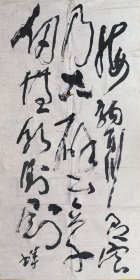 海納百川有容
乃大壁立千
仞無欲則剛